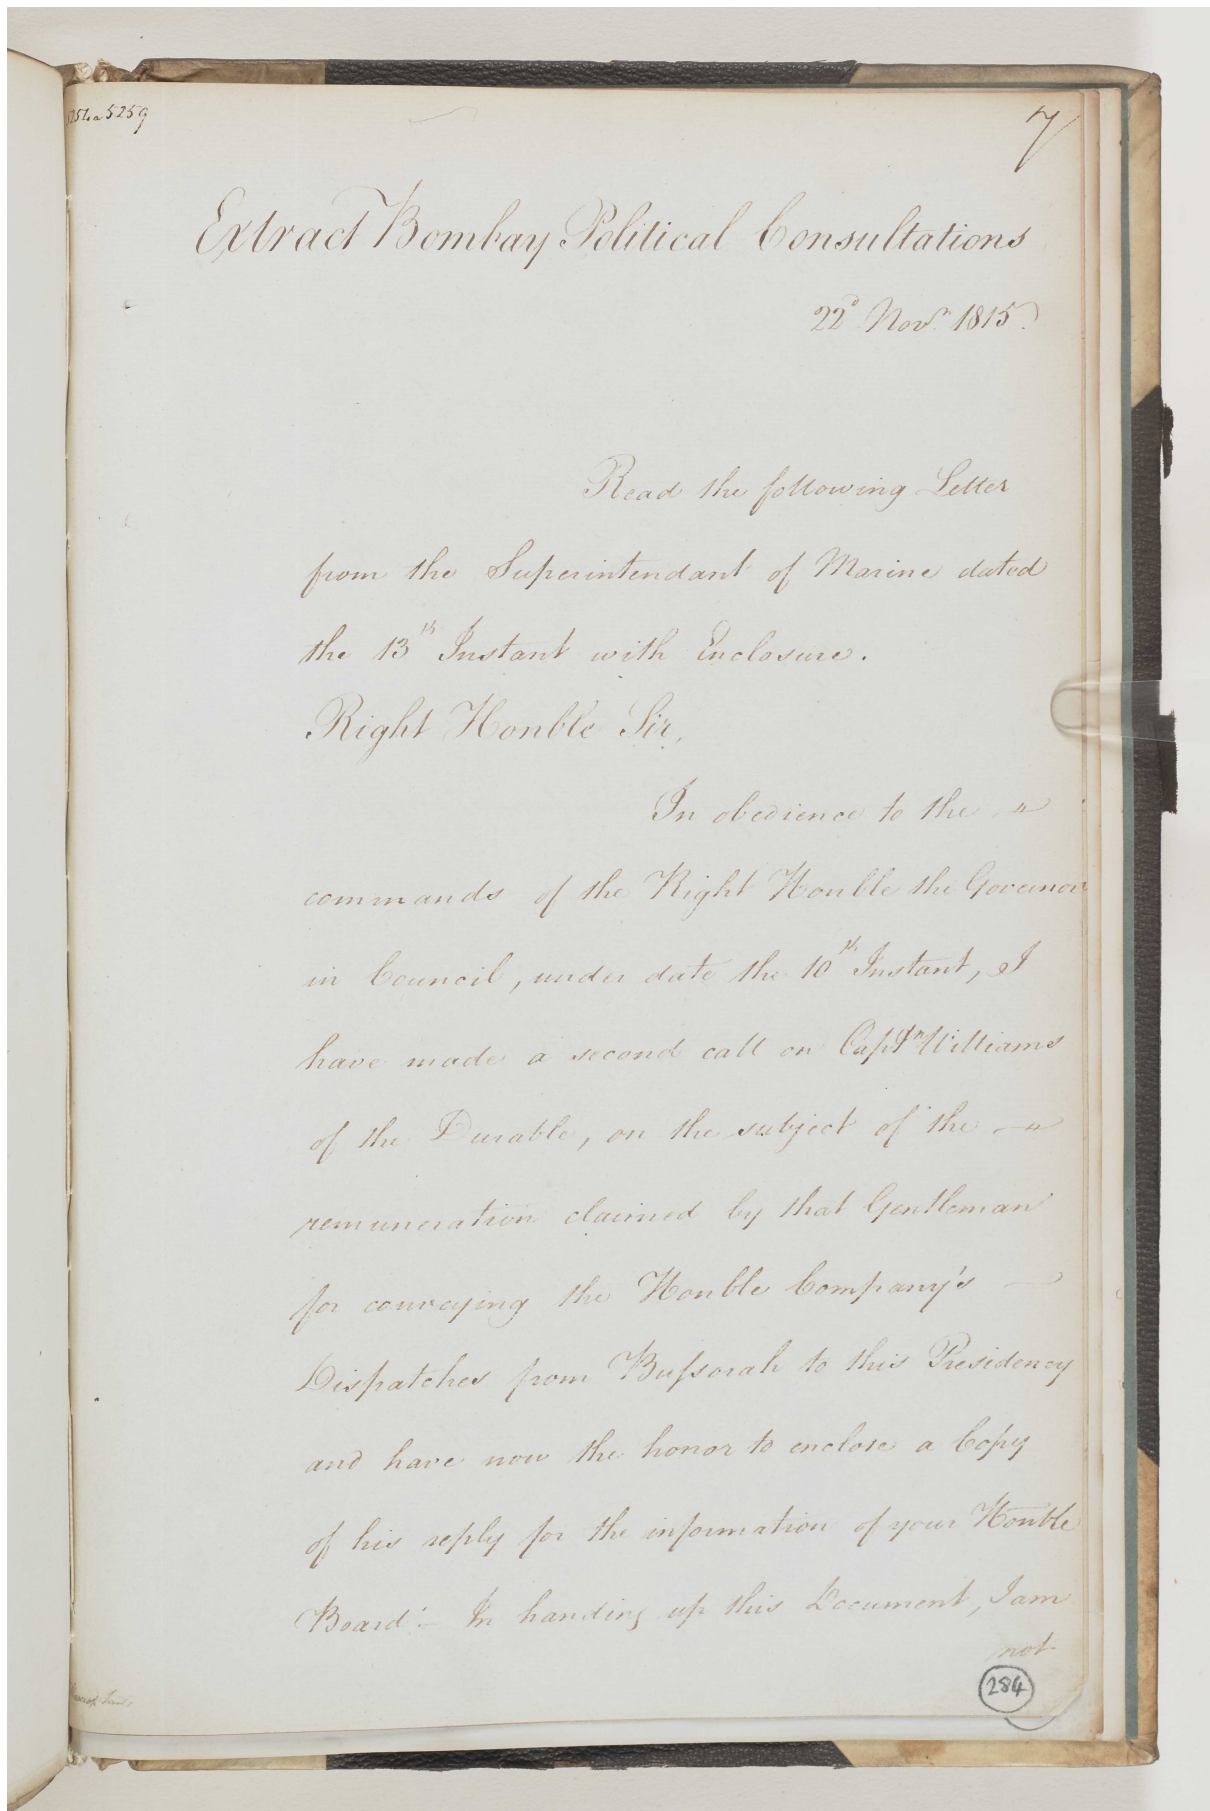 5259
7
Extract Bombay Political Consultations
22d Novr. 1815.
Read the following Letter
from the Superintendant of Marine dated
the 13th Instant with Enclosure.
Right Honble Sir,
In obedience to the
commands of the Right Honble the Governor
in Council, under date the 10th Instant, I
have made a second call on Captn Williams
of the Durable, on the subject of the
remuneration claimed by that Gentleman
for conveying the Honble Company's
Dispatches from Bussorah to this Presidency
and have now the honor to enclose a Copy
of his reply for the information of your Honble
Board:- In handing up this Document, I am
not
284